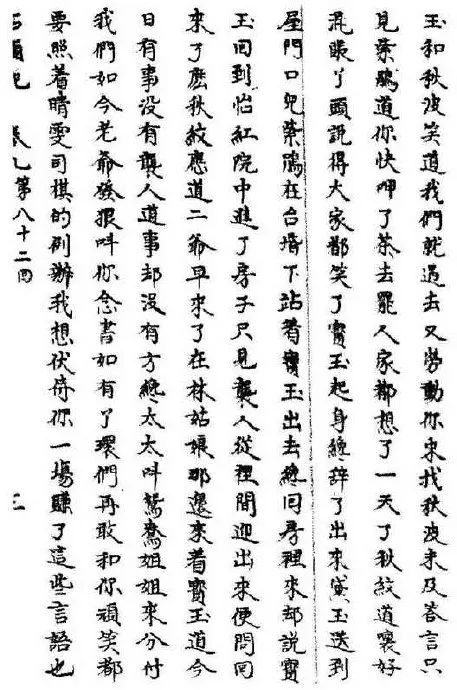 玉和秋波笑道我們就過去又勞動你來找秋波未及答言只
見紫鵑道你快呷了茶去罷人家都想了一天了秋紋道嚷好
混賬丫頭說得大家都笑了寶玉起身纔辭了出來黛玉送到
屋門口兒紫鵑在台堦下站着寶玉出去纔回房裡來却說寶
玉回到怡紅院中進了房子只見襲人從裡間迎出來便問回
來了麽秋紋應道二爺早來了在林姑娘那邊來着寶玉道今
日有事没有襲人道事却没有方纔太太叫鴛鴦姐姐來分付
我們如今老爺發狠叫你念書如有丫環們再敢和你頑笑都
要照着晴雯司棋的例辦我想伏侍你一場賺了這些言語也
第八十二回 三